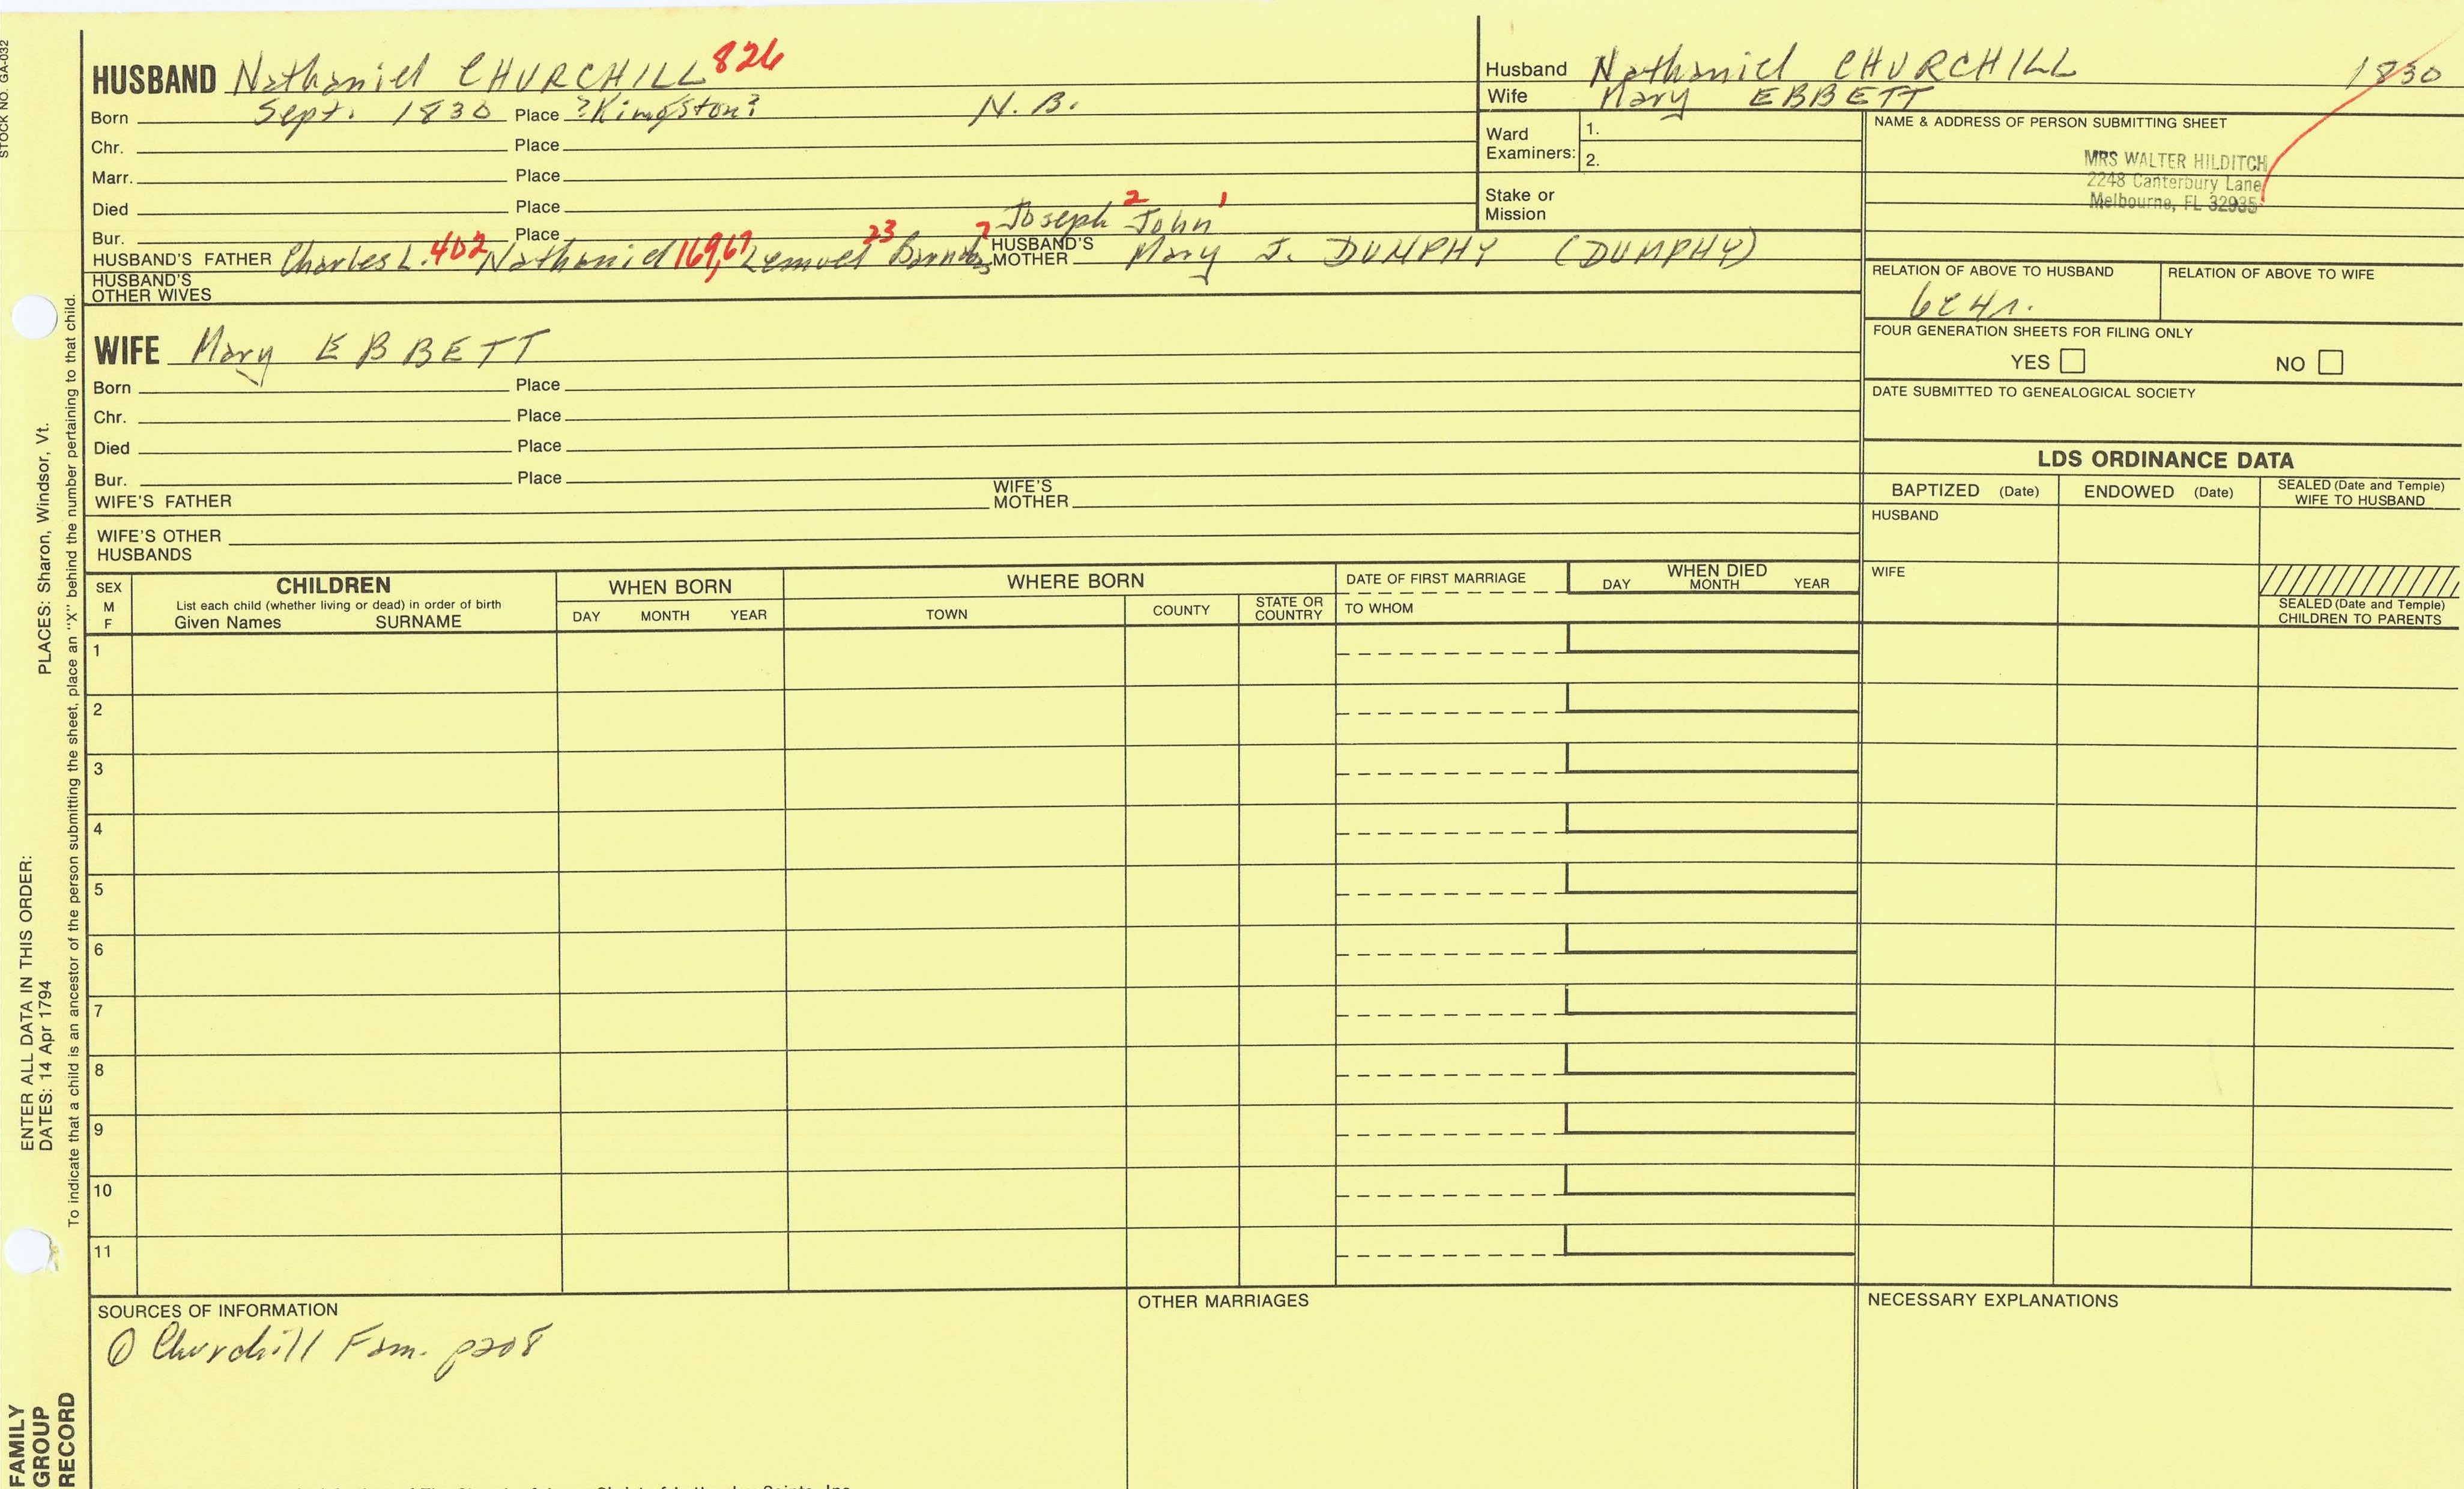 STOCK NO. GA-032
HUSBAND Nathaniel CHURCHILL 826
Born Sept. 1830 Place ?Kingston? N.B.
Chr. Place
Marr. Place
Died Place
Bur. Place
Joseph 2 John 1
HUSBAND'S FATHER Charles L. 402 Nathaniel 169,67 Lemuel 23 7 HUSBAND'S MOTHER Mary J. DUNPHY (DUMPHY)
HUSBAND'S OTHER WIVES
WIFE Mary EBBETT
Born Place
Chr. Place
Died Place
Bur. Place
WIFE'S FATHER WIFE'S MOTHER
WIFE'S OTHER HUSBANDS
Husband Nathaniel CHURCHILL 1830
Wife Mary EBBETT
Ward Examiners: 1.
2.
Stake or Mission
NAME & ADDRESS OF PERSON SUBMITTING SHEET
MRS WALTER HILDITCH
2248 Canterbury Lane
Melbourne, FL 32935
RELATION OF ABOVE TO HUSBAND RELATION OF ABOVE TO WIFE
FOUR GENERATION SHEETS FOR FILING ONLY
YES NO
DATE SUBMITTED TO GENEALOGICAL SOCIETY
LDS ORDINANCE DATA
BAPTIZED (Date) ENDOWED (Date) SEALED (Date and Temple) WIFE TO HUSBAND
HUSBAND
WIFE
SEALED (Date and Temple) CHILDREN TO PARENTS
SEX M F
CHILDREN
List each child (whether living or dead) in order of birth
Given Names SURNAME
WHEN BORN
DAY MONTH YEAR
WHERE BORN
TOWN COUNTY STATE OR COUNTRY
DATE OF FIRST MARRIAGE
TO WHOM
WHEN DIED
DAY MONTH YEAR
1
2
3
4
5
6
7
8
9
10
11
SOURCES OF INFORMATION
① Churchill Fam. p208
OTHER MARRIAGES
NECESSARY EXPLANATIONS
PLACES: Sharon, Windsor, Vt.
ENTER ALL DATA IN THIS ORDER:
DATES: 14 Apr 1794
To indicate that a child is an ancestor of the person submitting the sheet, place an "X" behind the number pertaining to that child.
FAMILY
GROUP
RECORD